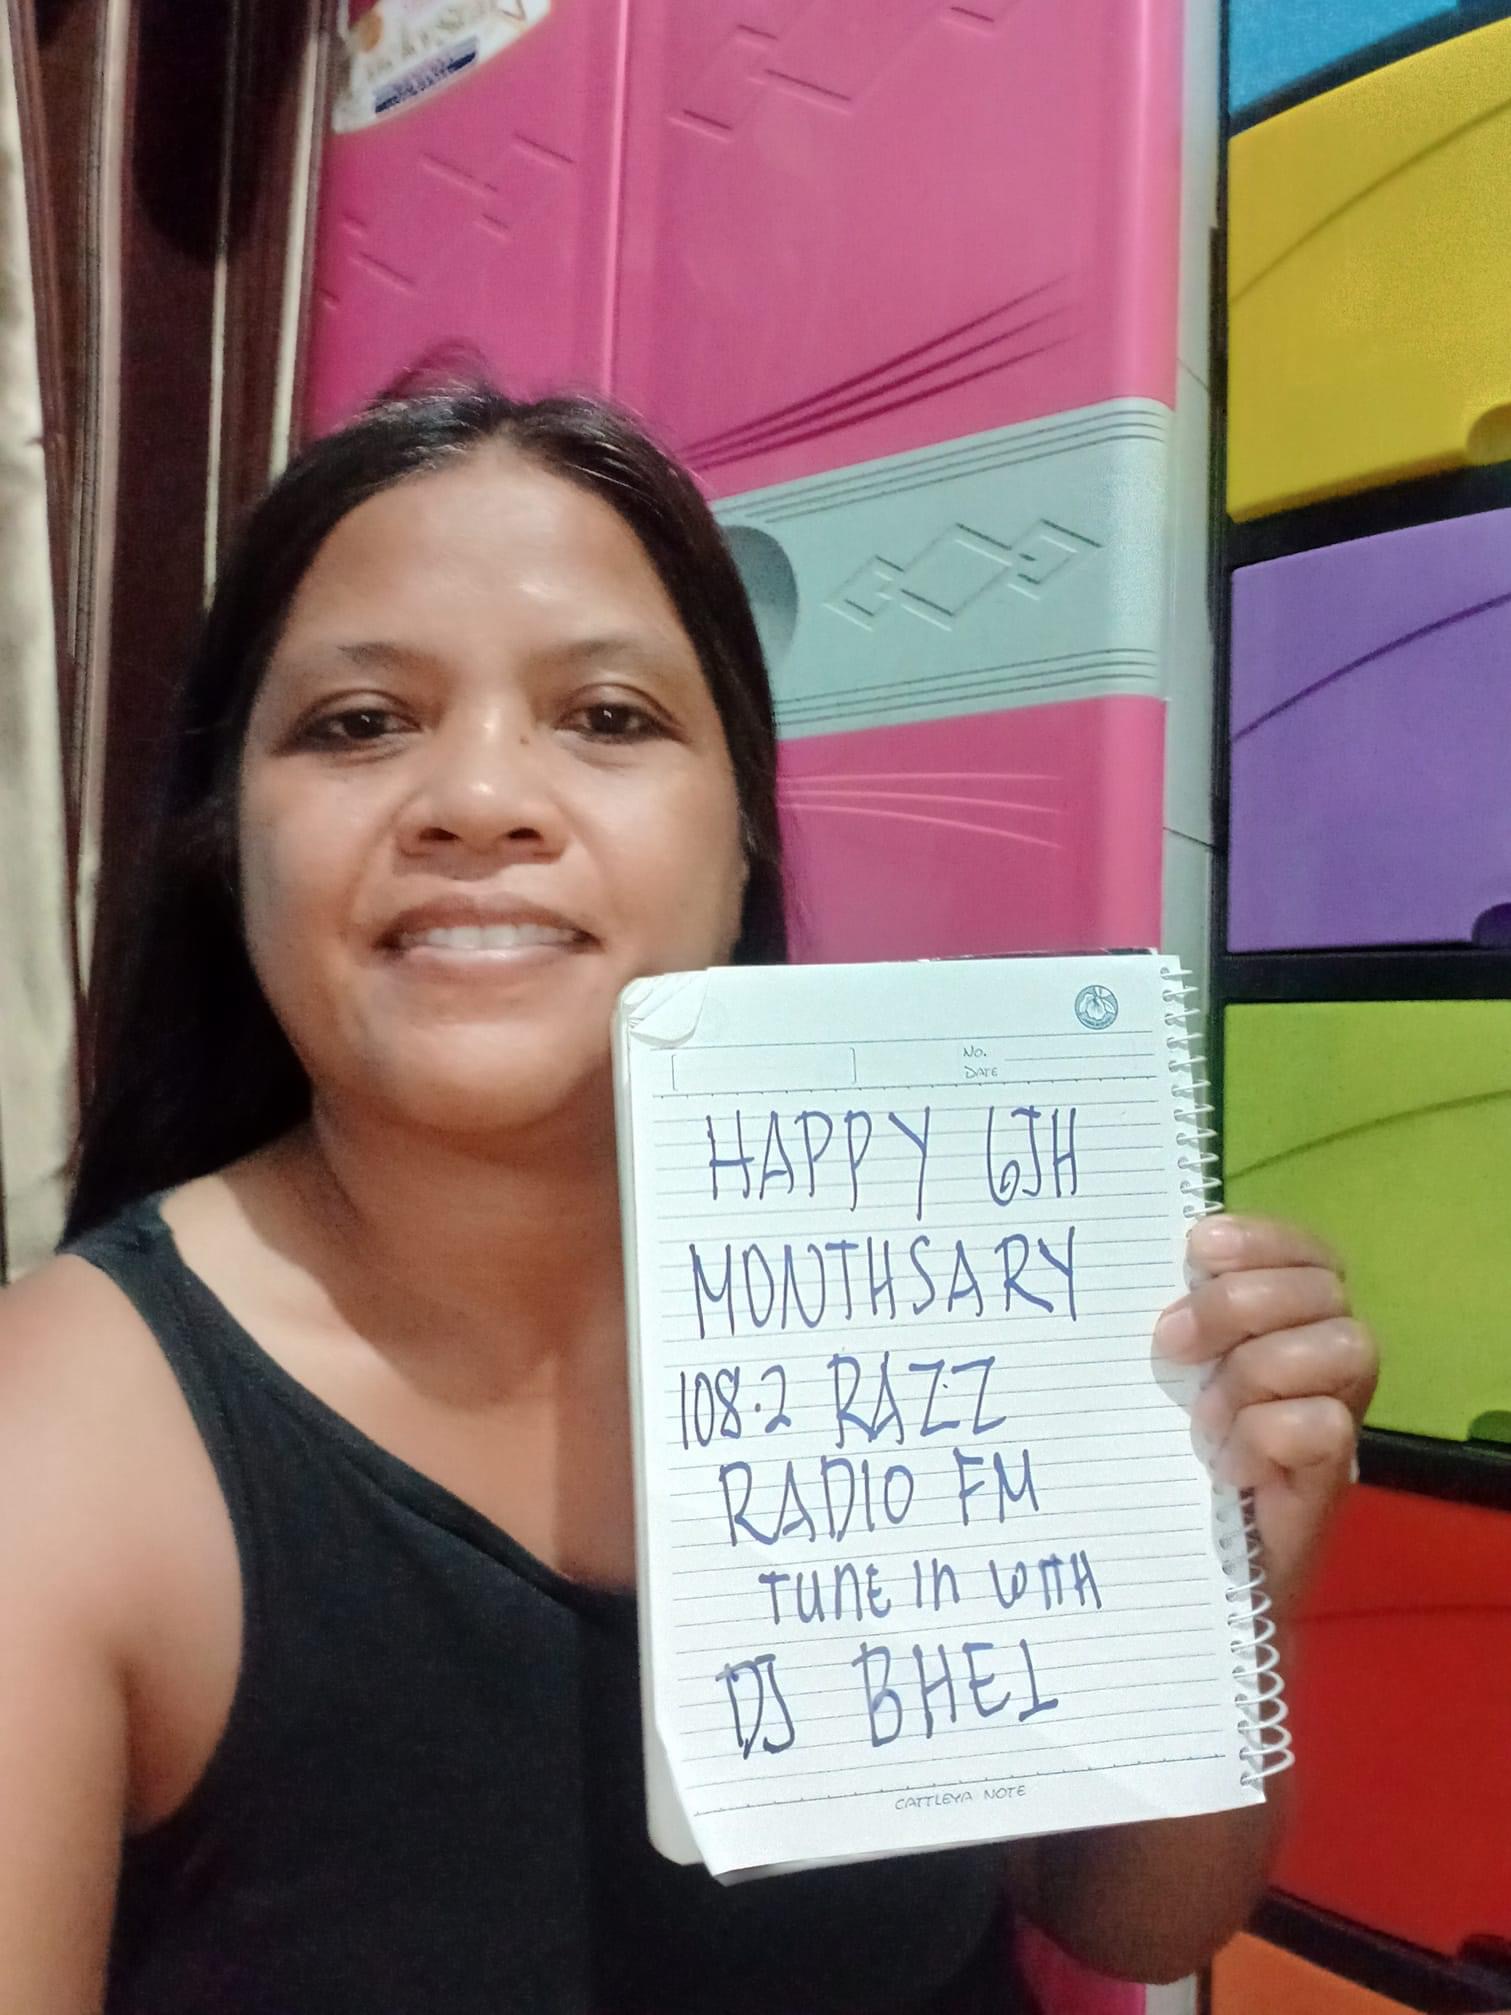 No.
DATE
HAPPY 6TH
MONTHSARY
108.2 RAZZ
RADIO FM
TUNE IN WITH
DJ BHEL
CATTLEYA NOTE